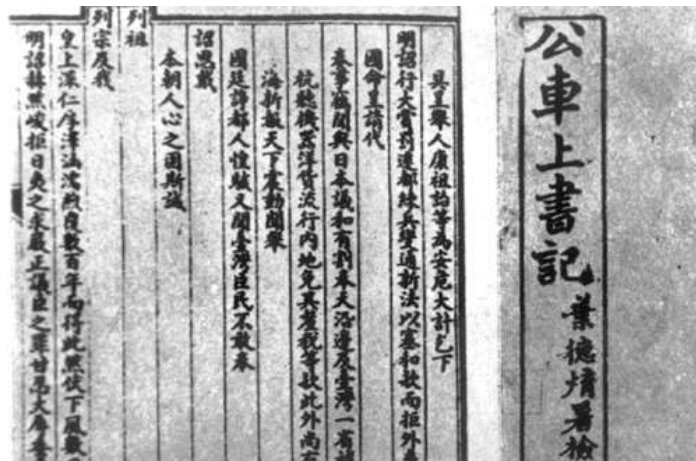 公車上書記
葉德煇署檢
具呈舉人康祖詒等為安危大計乞下
明詔行大賞罰遷都練兵變通新法以塞和款而拒外
國命呈請代
奏事竊聞與日本議和有割奉天沿邊及臺灣一省
杭聽機器洋貨流行內地免其釐稅等款此外尚有
海新報天下震動聞舉
國廷諍都人惶駭又聞臺灣臣民不敢奉
詔思戴
本朝人心之固斯誠
列祖
列宗及我
皇上深仁厚澤涵濡煦覆數百年而得此然伏下風數
明詔赫然峻拒日夷之求嚴正議臣之罪甘忍大辱委